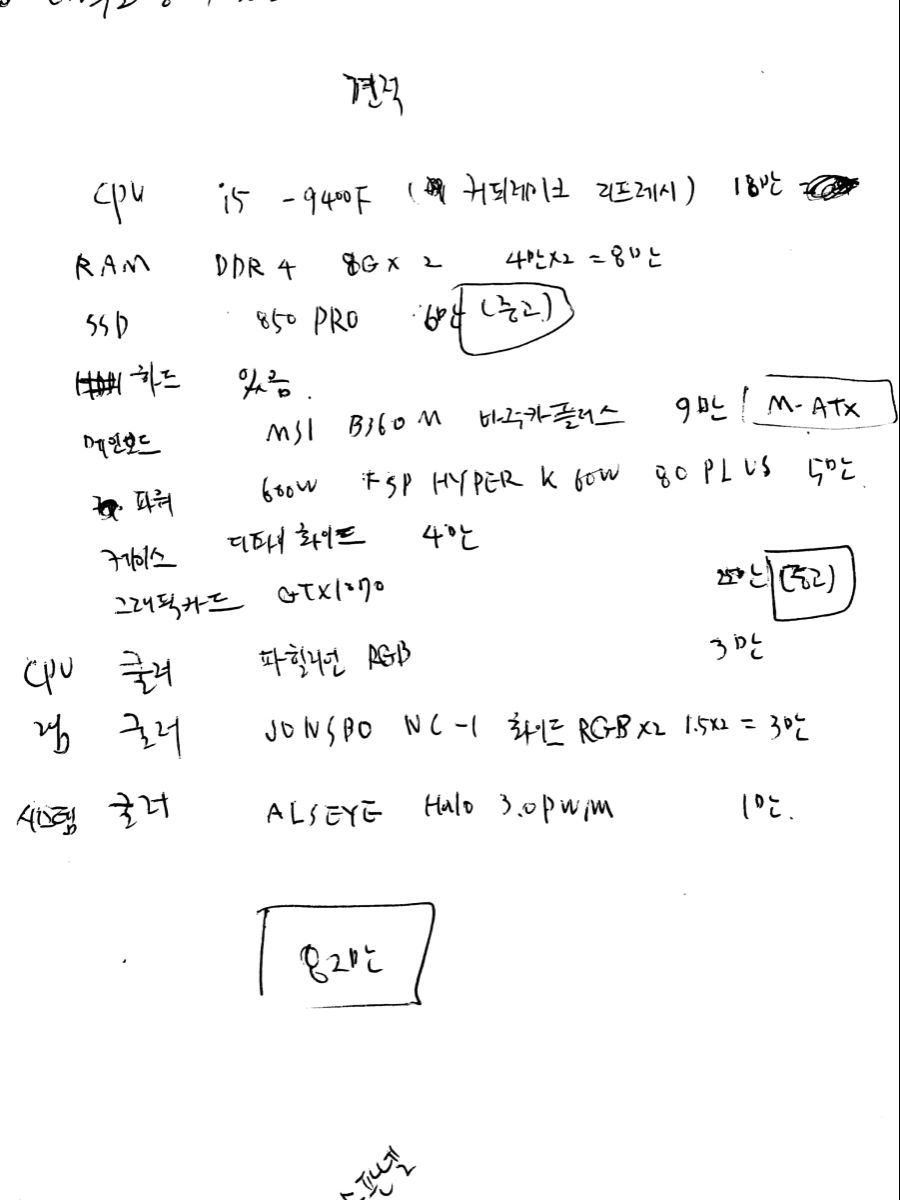 견적
CPU i5 -9400F ( 커피레이크 리프레시) 18만
RAM DDR 4 8G X 2 4만X2 = 8만
SSD 850 PRO 6만 (중고)
하드 있음.
메인보드 MSI B360M 박격카플러스 9만 M-ATX
파워 600W FSP HYPER K 60W 80 PLUS 5만
케이스 디파이 화이트 4만
그래픽카드 GTX1070 25만 (중고)
CPU 쿨러 파힐리언 RGB 3만
램 쿨러 JONSBO NC-1 화이트 RGB X2 1.5X2 = 3만
시스템 쿨러 ALSEYE Halo 3.0 PWM 1만.
82만